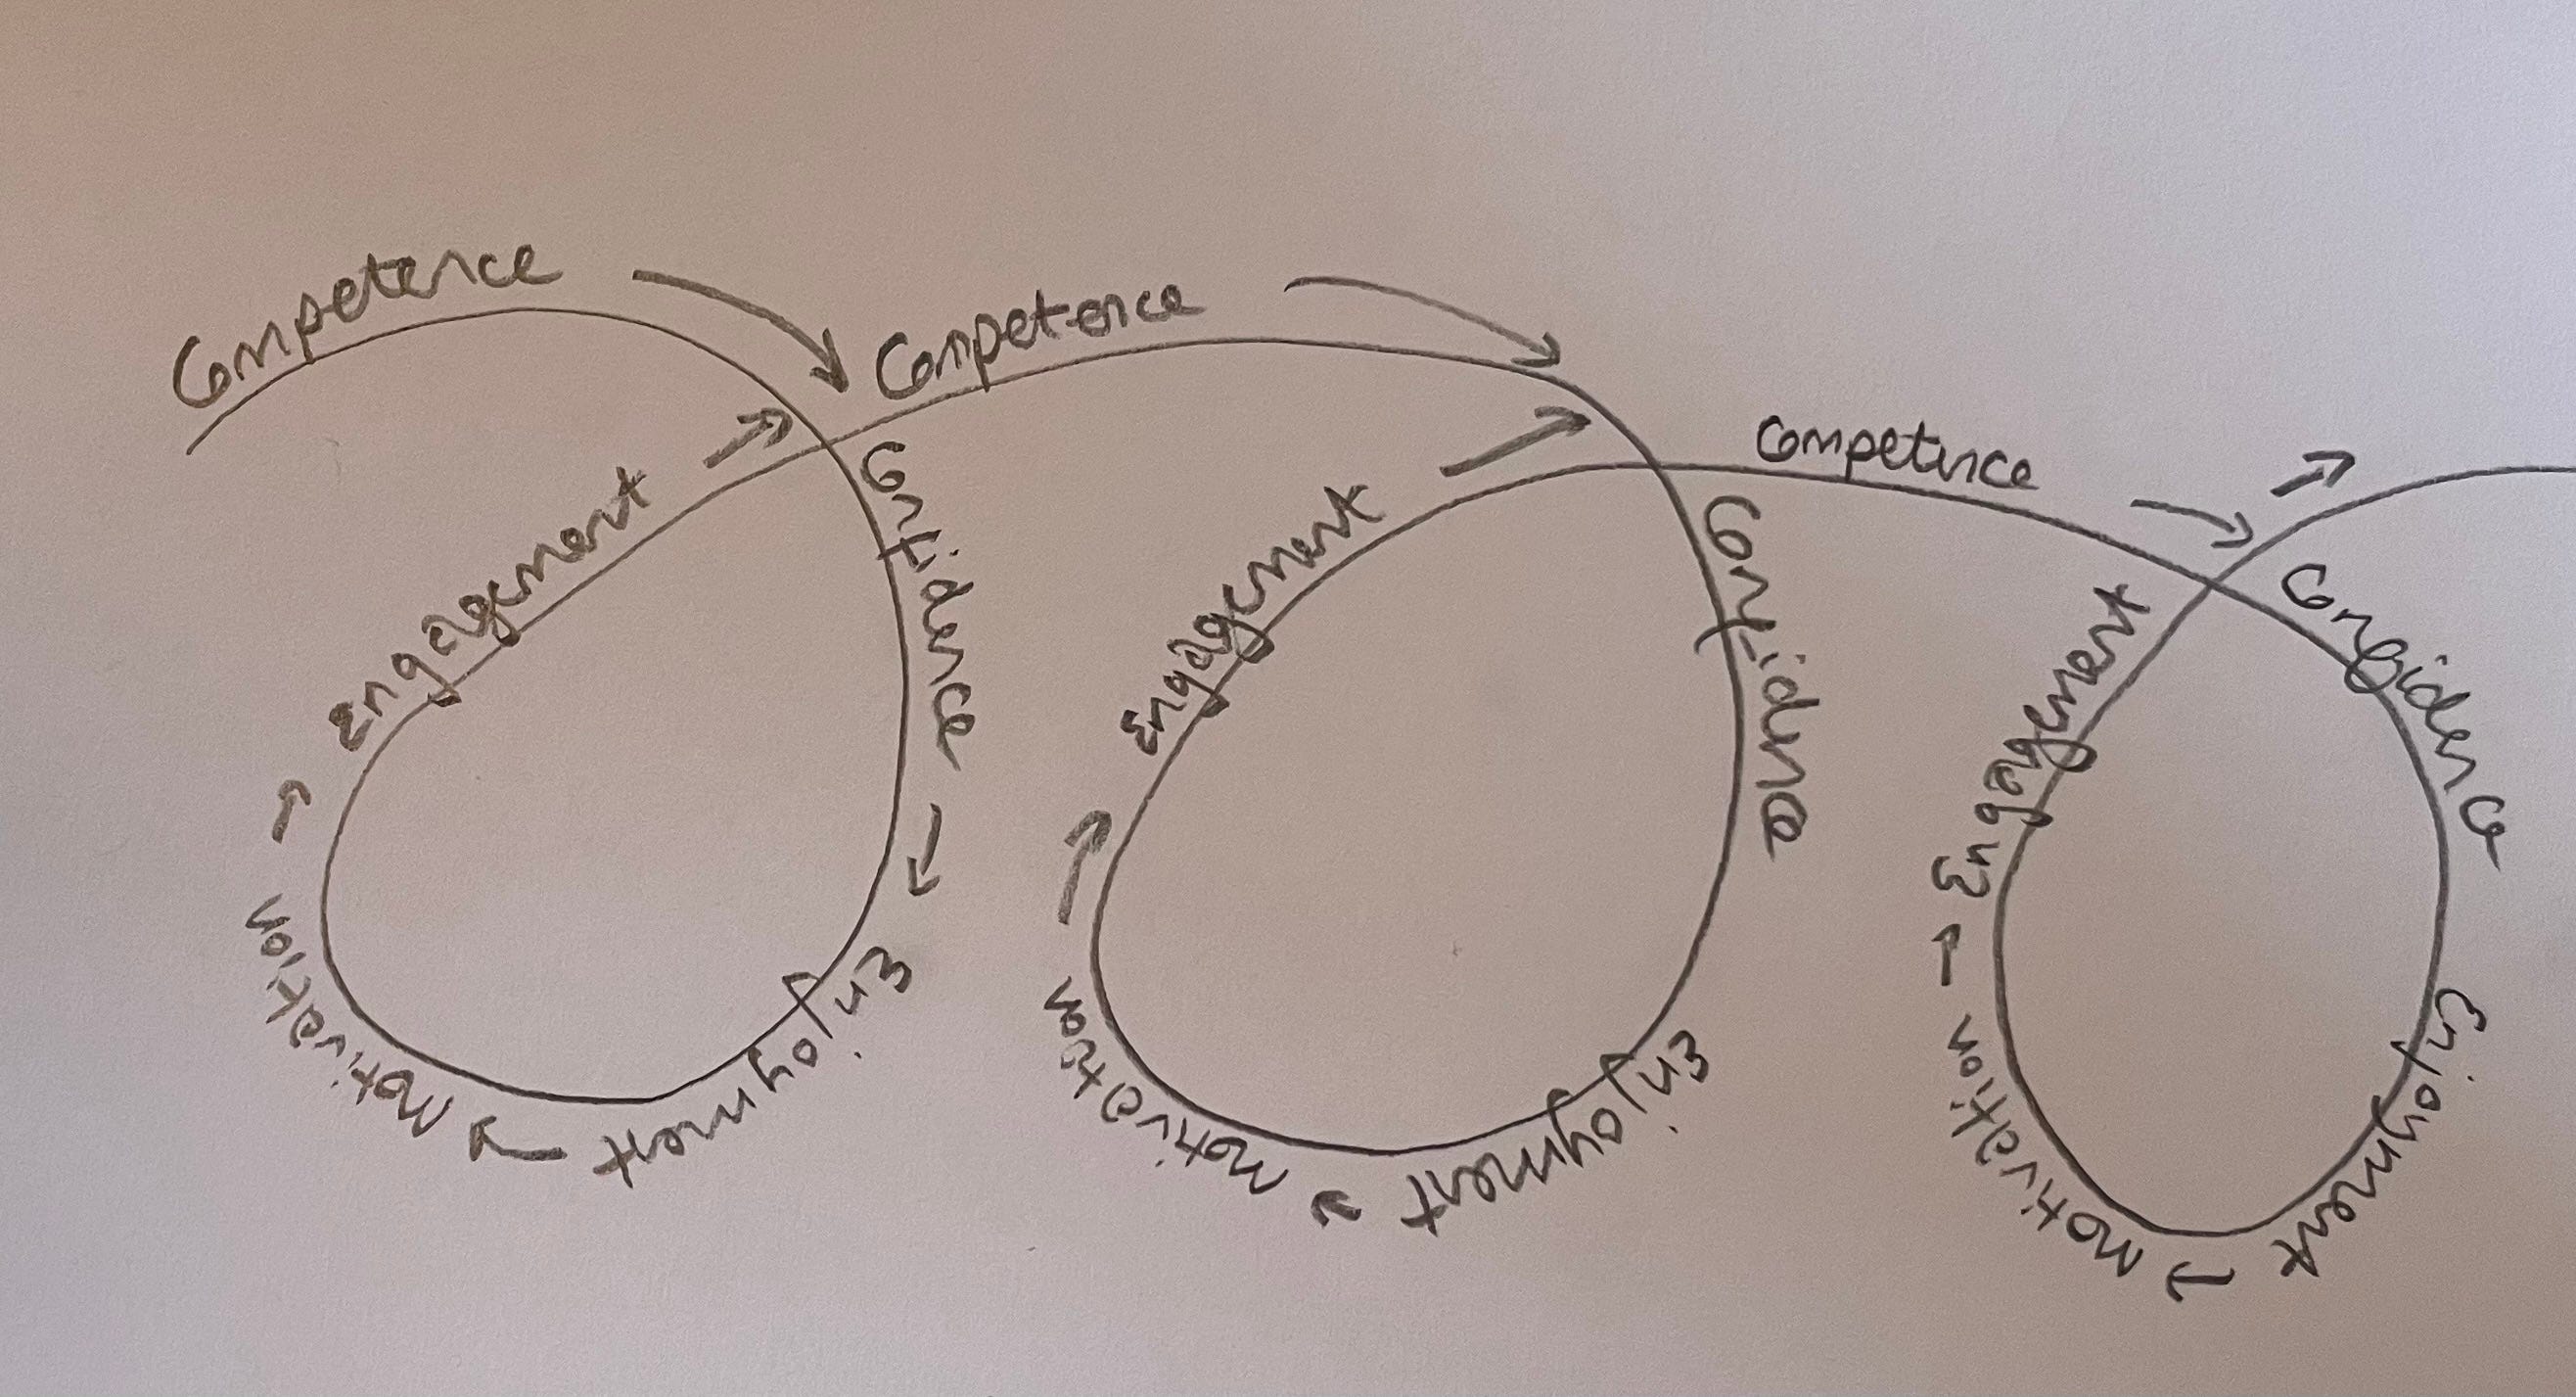 Competence
Confidence
Enjoyment
Motivation
Engagement
Competence
Confidence
Enjoyment
Motivation
Engagement
Competence
Confidence
Enjoyment
Motivation
Engagement